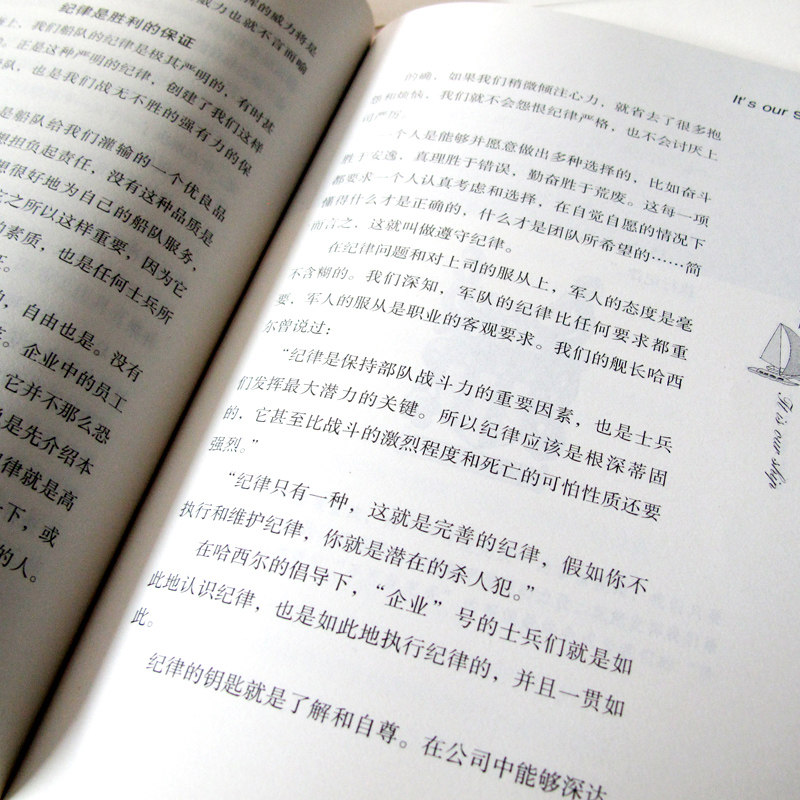 挥的威力将是
威力也就不言而喻
纪律是胜利的保证
上，我们船队的纪律是极其严明的，有时甚
。正是这种严明的纪律，创建了我们这样
队，也是我们战无不胜的强有力的保
是船队给我们灌输的一个优良品
想担负起责任，没有这种品质是
想很好地为自己的船队服务，
它之所以这样重要，因为它
的素质，也是任何士兵所
，自由也是。没有
企业中的员工
它并不那么恐
是先介绍本
律就是高
一下，或
的人。
It's our s
的确，如果我们稍微倾注心力，就省去了很多抱
怨和烦恼，我们就不会怨恨纪律严格，也不会讨厌上
司严厉。
一个人是能够并愿意做出多种选择的，比如奋斗
胜于安逸，真理胜于错误，勤奋胜于荒废。这每一项
都要求一个人认真考虑和选择，在自觉自愿的情况下
懂得什么才是正确的，什么才是团队所希望的……简
而言之，这就叫做遵守纪律。
在纪律问题和对上司的服从上，军人的态度是毫
不含糊的。我们深知，军队的纪律比任何要求都重
要，军人的服从是职业的客观要求。我们的舰长哈西
尔曾说过：
“纪律是保持部队战斗力的重要因素，也是士兵
们发挥最大潜力的关键。所以纪律应该是根深蒂固
的，它甚至比战斗的激烈程度和死亡的可怕性质还要
强烈。”
“纪律只有一种，这就是完善的纪律，假如你不
执行和维护纪律，你就是潜在的杀人犯。”
在哈西尔的倡导下，“企业”号的士兵们就是如
此地认识纪律，也是如此地执行纪律的，并且一贯如
此。
纪律的钥匙就是了解和自尊。在公司中能够深达
It is our ship